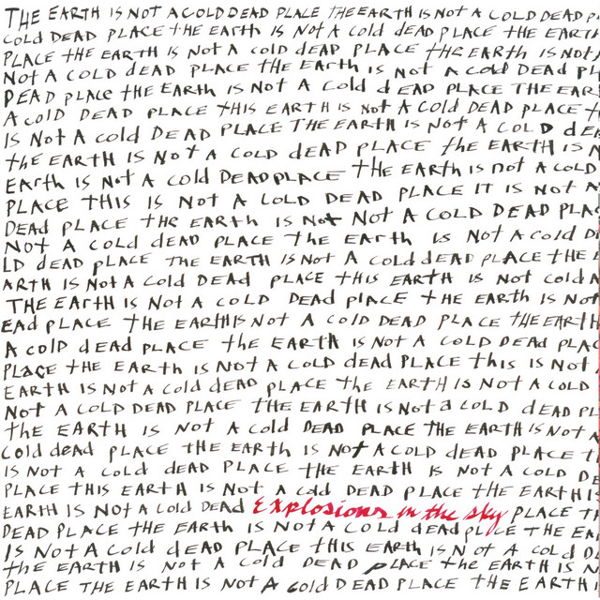 THE EARTH IS NOT A COLD DEAD PLACE THE EARTH IS NOT A COLD DEAD P
COLD DEAD PLACE THE EARTH IS NOT A cold dEAD PLACE THE EARTH
PLACE THE EARTH IS NOT A cold dEAD PLACE THE EARTH IS NOT
NOT A COLD dEAD PLACE tHE EArth IS NOT A cold DEAD PL
DEAD PLACE tHE EARTH IS NOT A COLD dEAD PLACE THE EAR
A COLD DEAD PLACE tHIS EARTH IS Not A COLD DEAD PLACE t
IS NOT A cold DEAD PLACE THE EARTH IS NOT A COLD dE
tHE EARTH IS NOT A COLD dEAD PLACE tHE EARTH IS N
EARth IS NOT A cold DEAD PLACE tHE EARTH IS not A COLD
PLACE THIS IS NOT A COLD DEAD PLACE IT IS NOT A
DEAD PLACE tHE EARTH IS NOt NOT A COLD DEAD PLA
NOT A COLD dEAD PLACE THE EARTH IS NOT A COLD D
LD DEAD PLACE THE EARTH IS NOT A COLD dEAD PLACE tHE E
ARTH IS NOT A Cold DEAd PLACE tHIS EARTH IS NOT cold A
THE EARTH IS NOT A COLD DEAd PLACE tHE EARTH IS NOT
EAD PLACE THE EARTH IS NOT A COLD DEAD PLACE THE EARTH
A COLD DEAD PLACE tHE EARTH IS NOT A COLD DEAD PLAC
PLACE tHE EARTH IS NOT A COLD dEAD PLACE tHIS IS NOT
EARTH IS NOT A cold dEAD PLACE tHE EARTH IS NOT A COLD
NOT A COLD DEAD PLACE THE EARTH IS NOT A COLD dEAD PL
tHE EARTH IS NOT A COLD DEAD PLACE THE EARTH IS NOT A
COld dEAd PLACE THE EARTH IS NOT A COLD DEAD PLACE t
IS NOT A COLD dEAD PLACE THE EARTH IS NOT A COLD DE
PLACE THIS EARTH IS NOT A cold DEAD PLACE tHE EARTH IS
EARTH IS NOT A cold DEAD Explosions in the sky PLACE T
DEAD PLACE tHE EARTH IS NOT A COLD dEAd PLACE THE EA
IS NOT A COld dEAD PLACE tHIS EARTH IS NOT A COLD D
tHE EARTH IS NOT A COLD DEAD PLACE tHE EARTH IS N
PLACE THE EARTH IS NOT A COLD DEAD PLACE tHE EARTH I